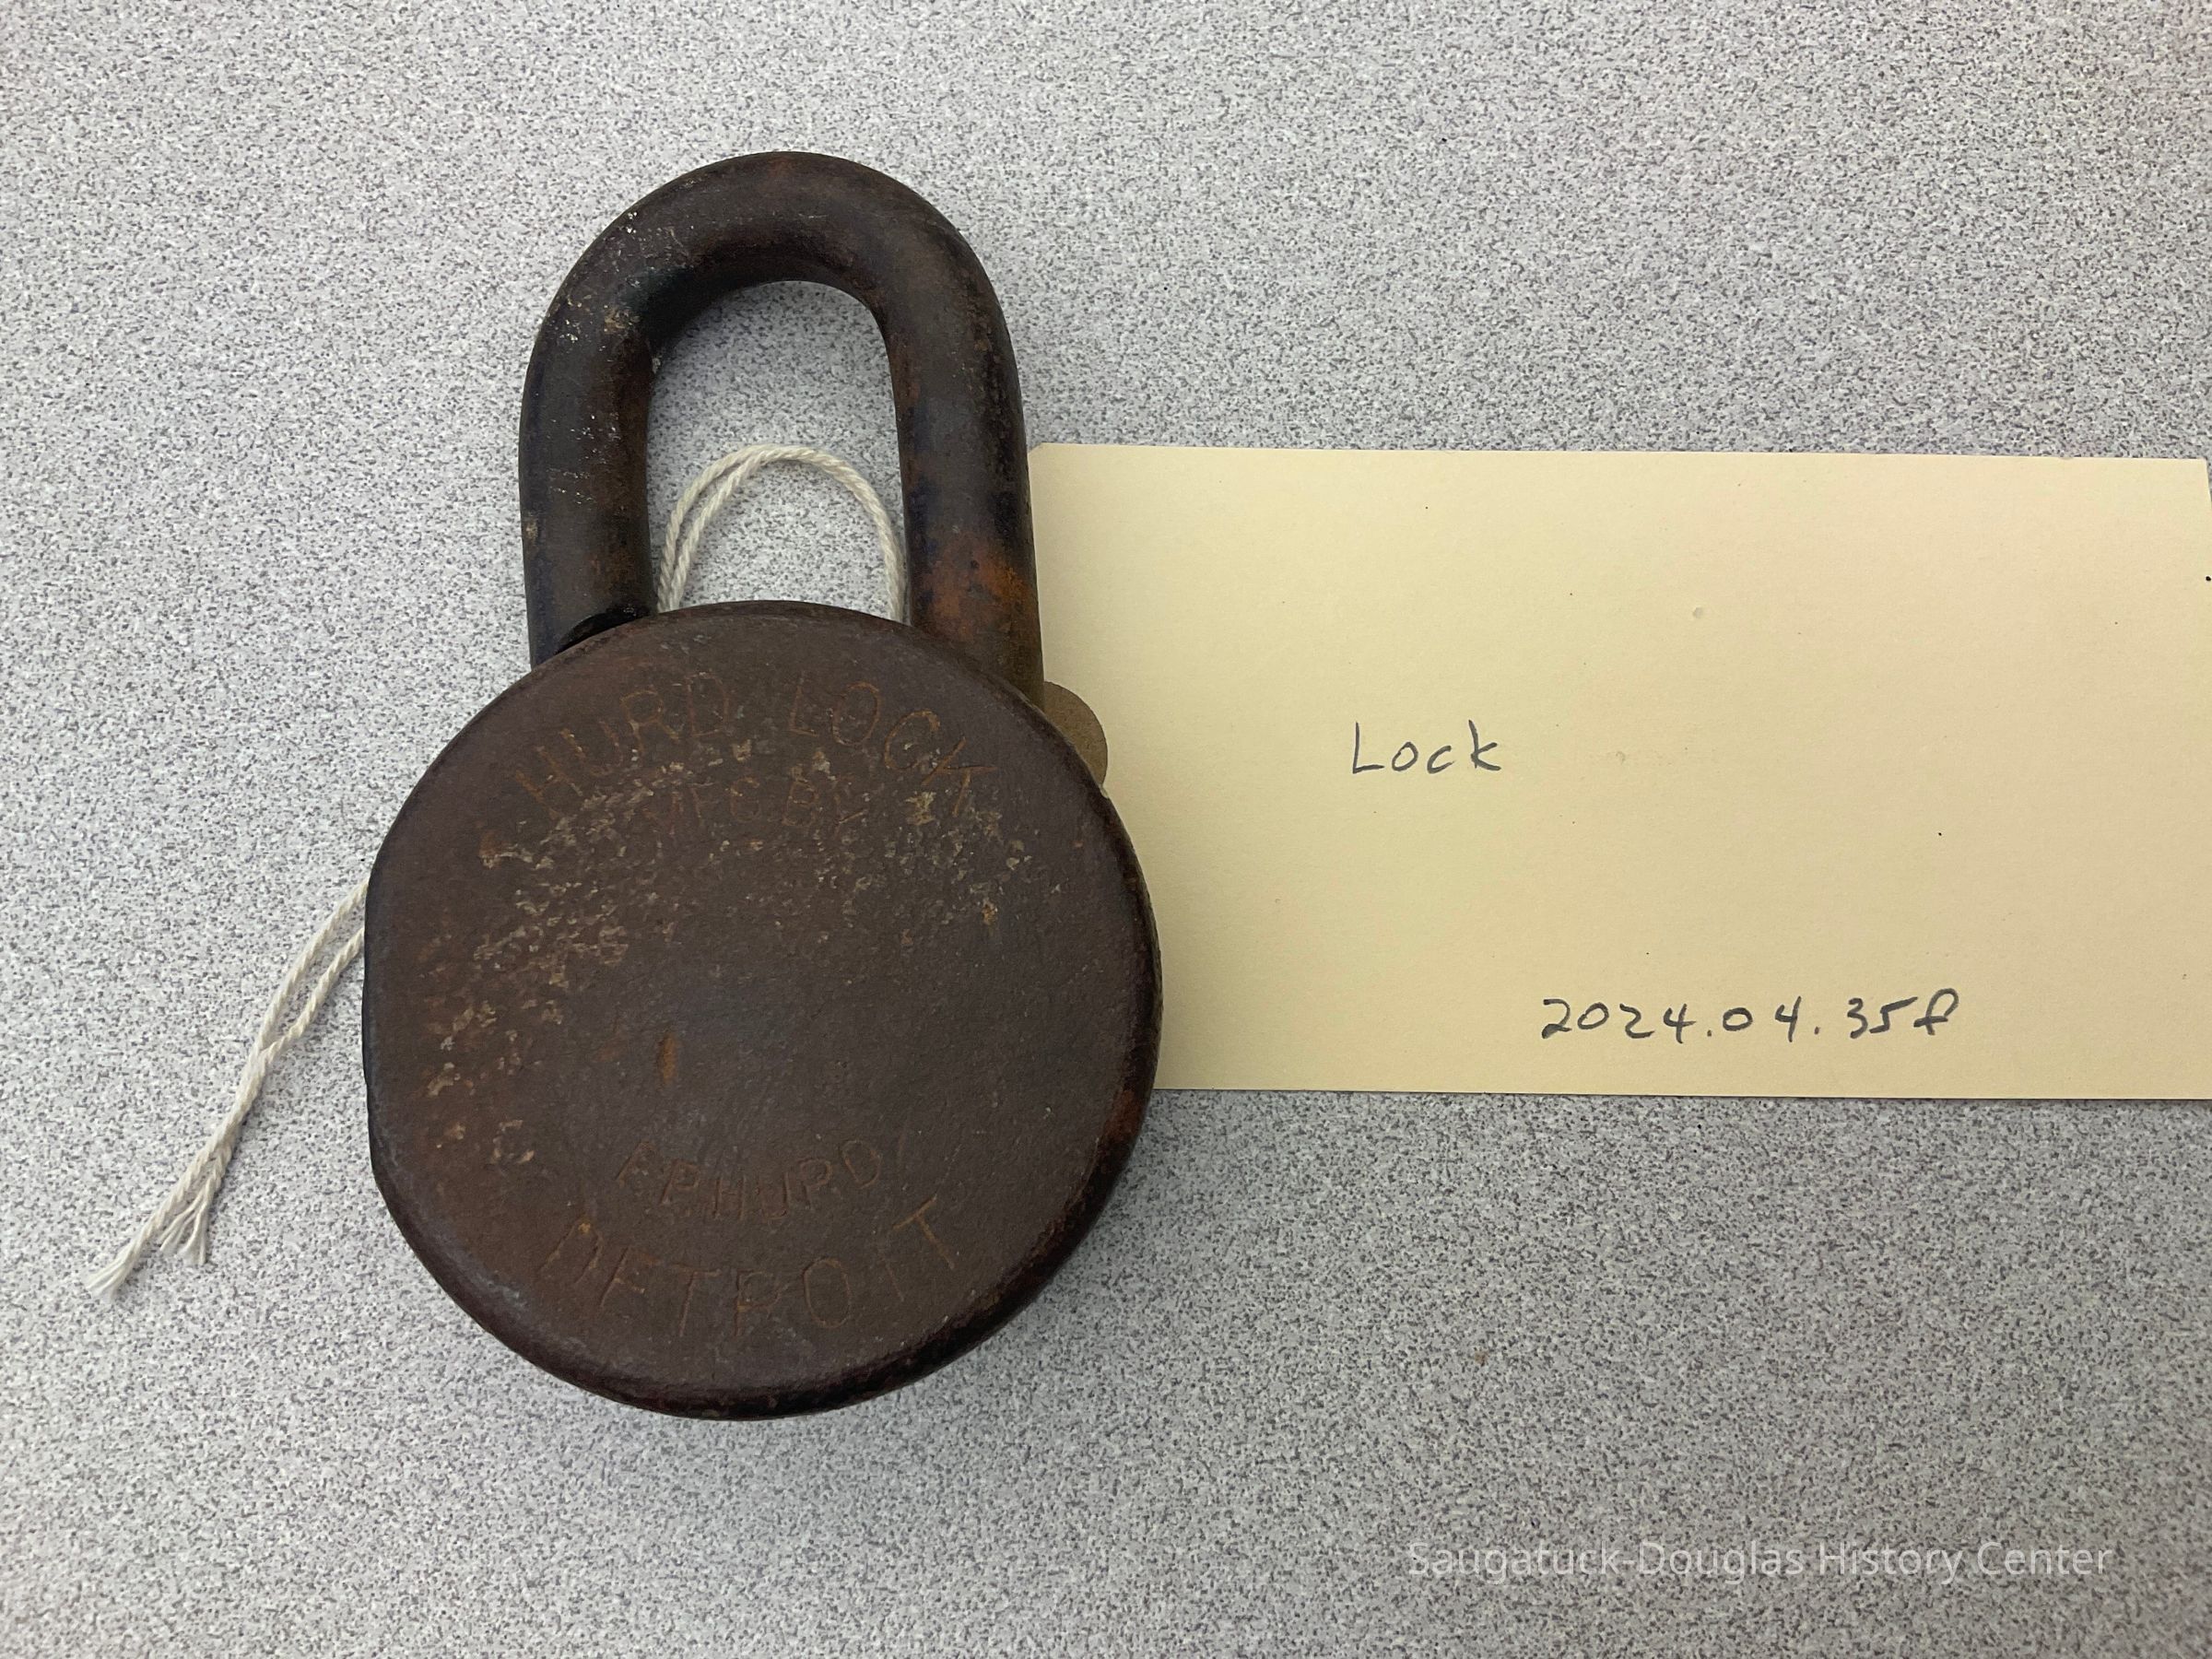 HURD LOCK
MFG BY
F.P. HURD
DETROIT
Lock
2024.04.35f
Saugatuck-Douglas History Center